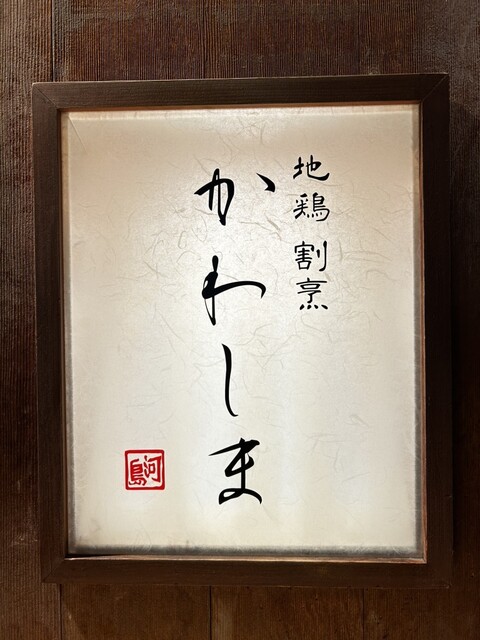 地鶏 割烹
かわしま
河島